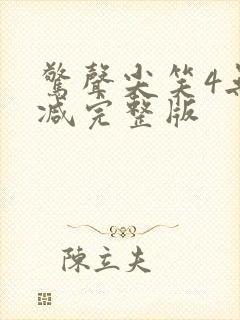 驚聲尖笑4
減完整版
陳立夫